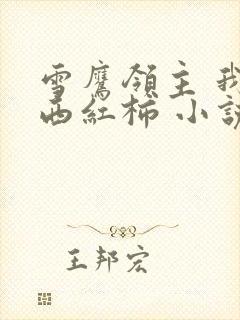 雪鷹領主 我
西紅柿 小說
王邦宏